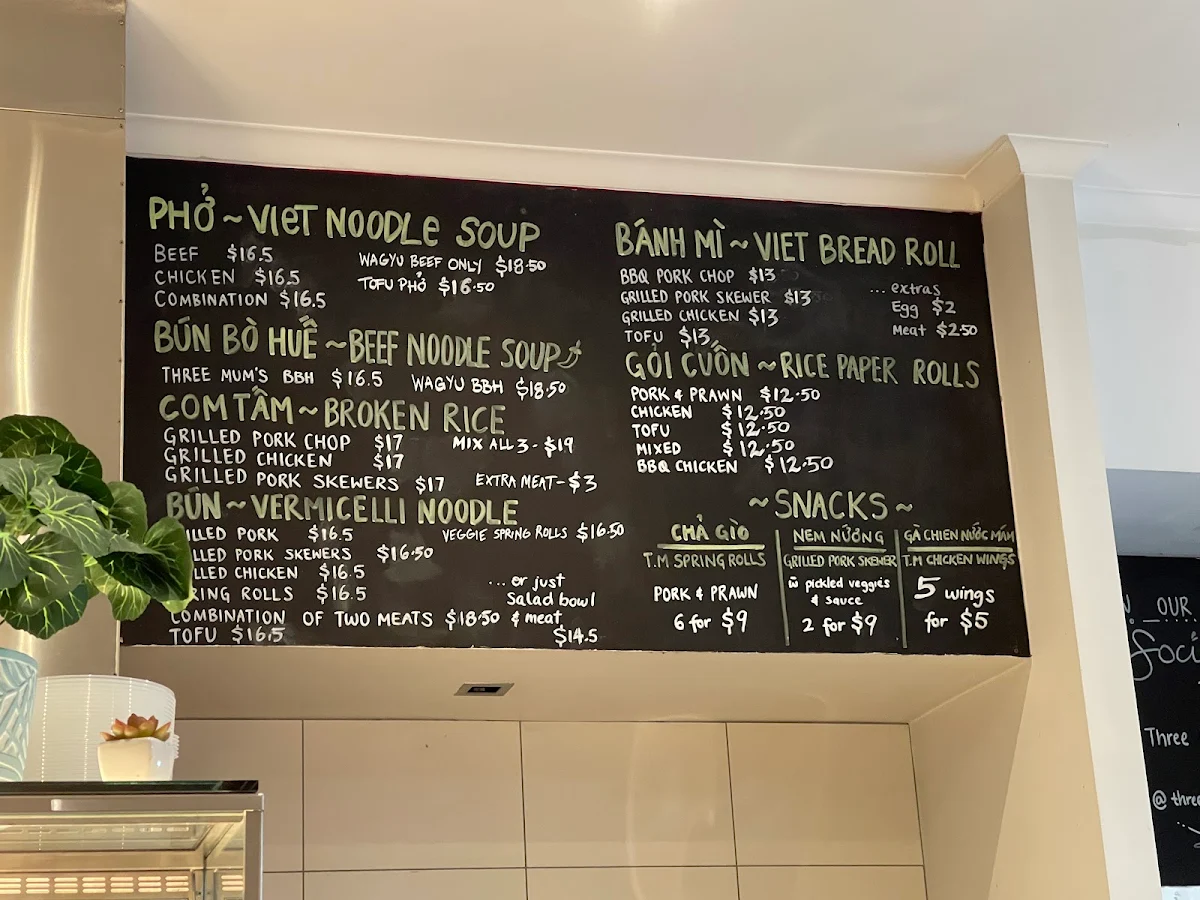 PHỞ ~ VIET NOODLE SOUP
BEEF $16.5
CHICKEN $16.5
COMBINATION $16.5
WAGYU BEEF ONLY $18.50
TOFU PHỞ $16.50
BÚN BÒ HUẾ ~ BEEF NOODLE SOUP
THREE MUM'S BBH $16.5 WAGYU BBH $18.50
COM TẤM ~ BROKEN RICE
GRILLED PORK CHOP $17 MIX ALL 3 - $19
GRILLED CHICKEN $17
GRILLED PORK SKEWERS $17 EXTRA MEAT - $3
BÚN ~ VERMICELLI NOODLE
ILLED PORK $16.5 VEGGIE SPRING ROLLS $16.50
LLED PORK SKEWERS $16.50
LLED CHICKEN $16.5
RING ROLLS $16.5
COMBINATION OF TWO MEATS $18.50
TOFU $16.5
... or just
Salad bowl
& meat
$14.5
BÁNH MÌ ~ VIET BREAD ROLL
BBQ PORK CHOP $13
GRILLED PORK SKEWER $13
GRILLED CHICKEN $13
TOFU $13
... extras
Egg $2
Meat $2.50
GỎI CUỐN ~ RICE PAPER ROLLS
PORK & PRAWN $12.50
CHICKEN $12.50
TOFU $12.50
MIXED $12.50
BBQ CHICKEN $12.50
~ SNACKS ~
CHẢ GIÒ
T.M SPRING ROLLS
PORK & PRAWN
6 for $9
NEM NƯỚNG
GRILLED PORK SKEWER
w̃ pickled veggies
& sauce
2 for $9
GÀ CHIEN NƯỚC MẮM
T.M CHICKEN WINGS
5 wings
for $5
OUR
Soci
Three
@ thre